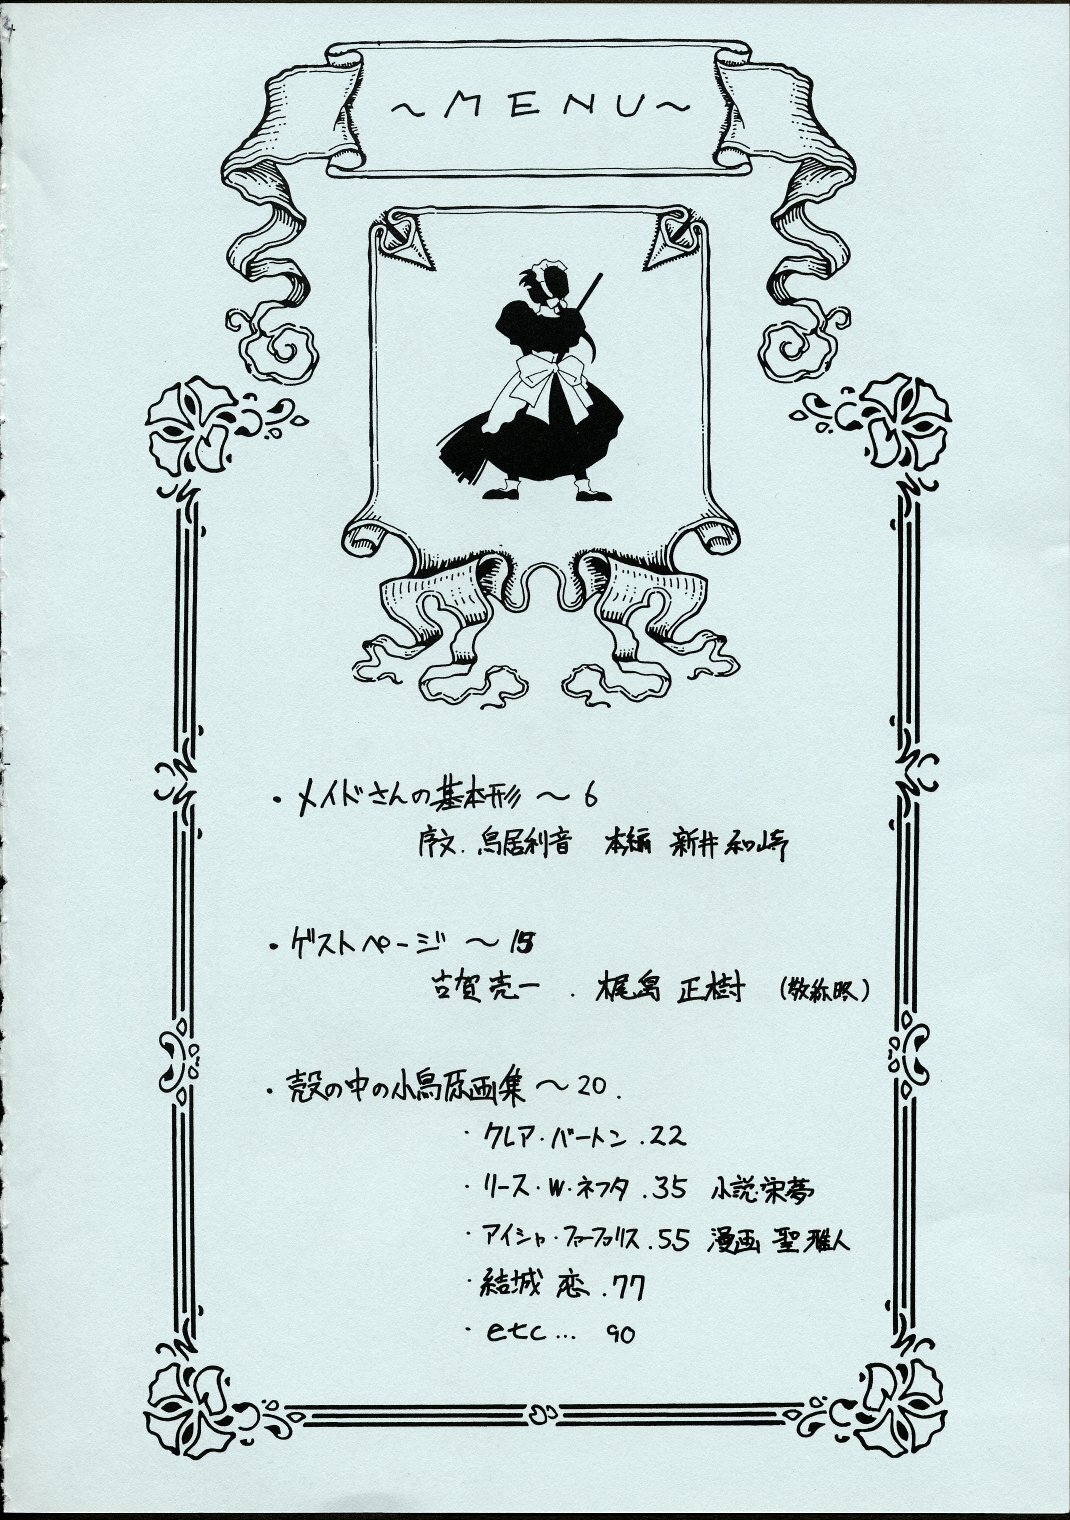 ~MENU~
・メイドさんの基本形 ～ 6
序文. 鳥居利音 本編 新井和崎
・ゲストページ ～15
古賀亮一 . 梶島 正樹 (敬称略)
・殻の中の小鳥原画集 ～20.
・クレア・バートン .22
・リース・W・ネフタ .35 小説・栄夢
・アイシャ・ファーファリス .55 漫画 聖 雅人
・結城 恋 .77
・etc... 90